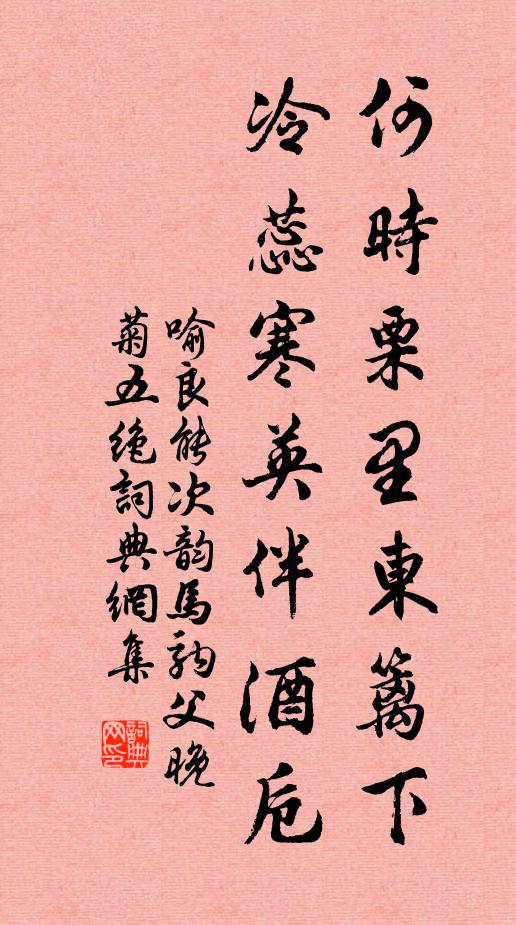 何時栗里東籬下
冷蕊寒英伴酒卮
喻良能次韵馬駒父晚
菊五绝詞典網集
詞典网印